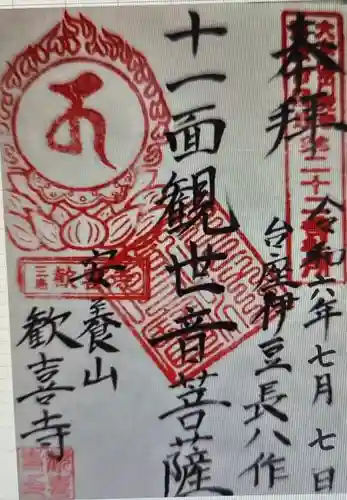 奉拝
令和六年七月七日
台座伊豆長八作
十一面観世音菩薩
安養山
歓喜寺